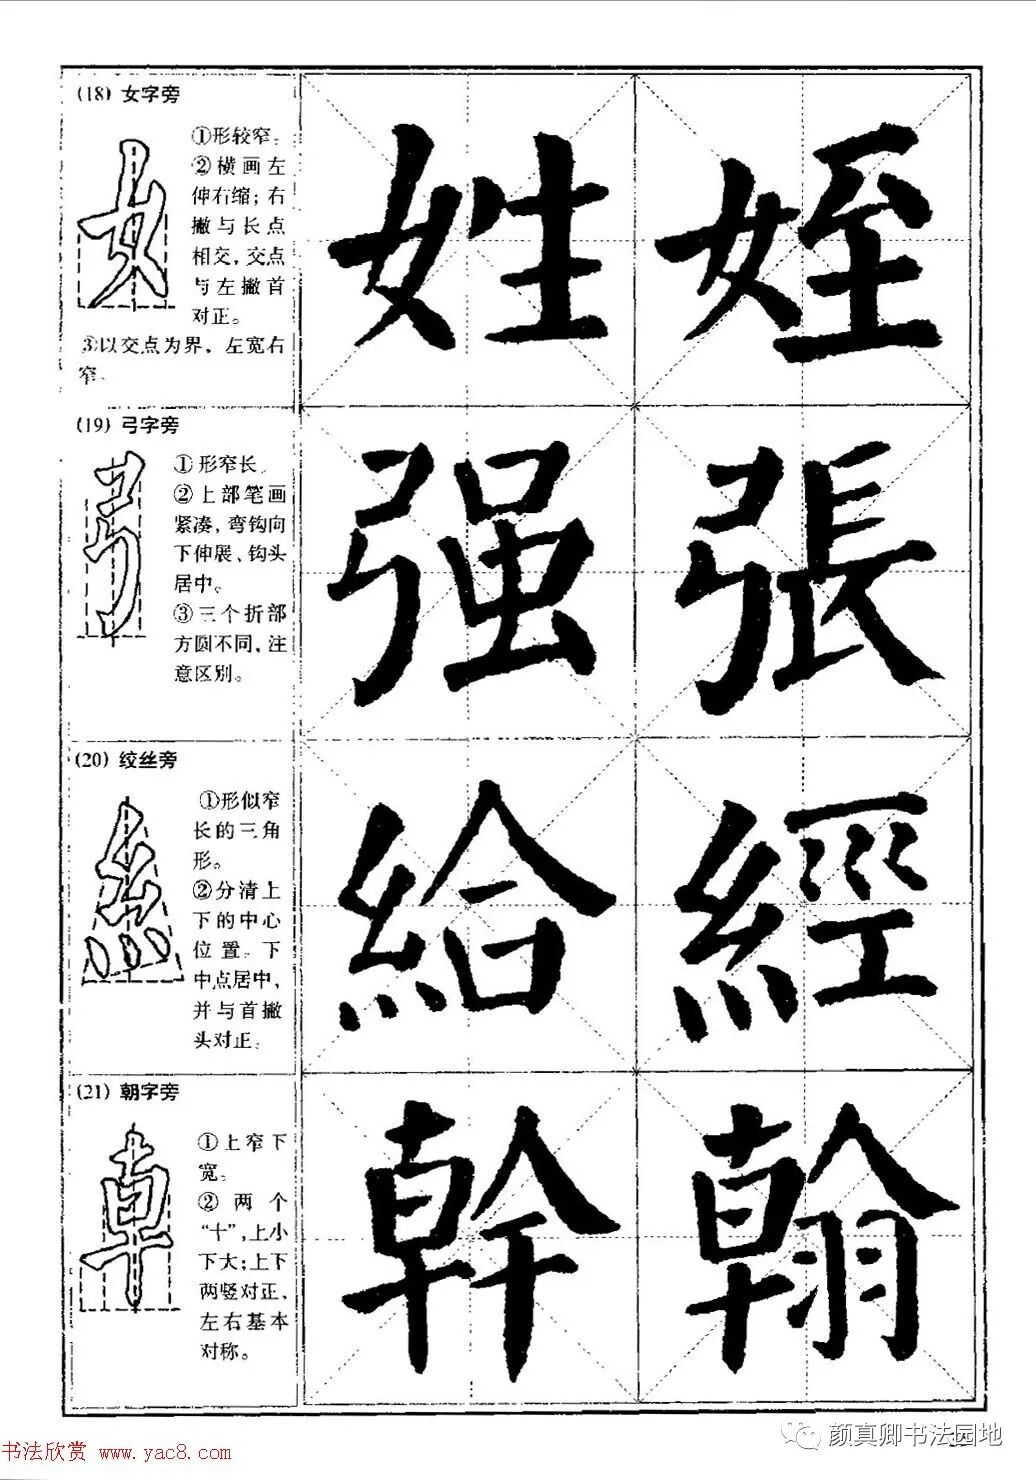 (18) 女字旁
女
①形较窄。
②横画左
伸右缩；右
撇与长点
相交，交点
与左撇首
对正。
③以交点为界，左宽右
窄。
姓 姪
(19) 弓字旁
弓
①形窄长
②上部笔画
紧凑，弯钩向
下伸展、钩头
居中。
③三个折部
方圆不同，注
意区别。
强 張
(20) 绞丝旁
糹
①形似窄
长的三角
形。
②分清上
下的中心
位置。下
中点居中，
并与首撇
头对正。
給 經
(21) 朝字旁
①上窄下
宽。
②两个
“十”，上小
下大；上下
两竖对正，
左右基本
对称。
幹 翰
书法欣赏 www.yac8.com
颜真卿书法园地